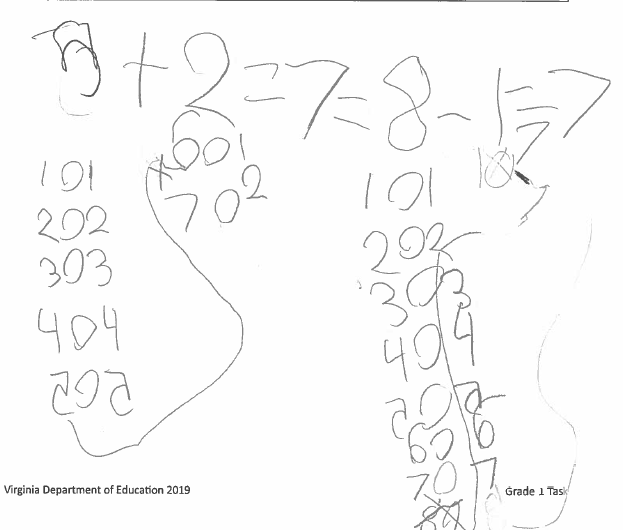 5 + 2 = 7 = 8 - 1 = 7
101
202
303
404
505
601
702
101
202
303
404
505
606
707
Virginia Department of Education 2019
Grade 1 Task